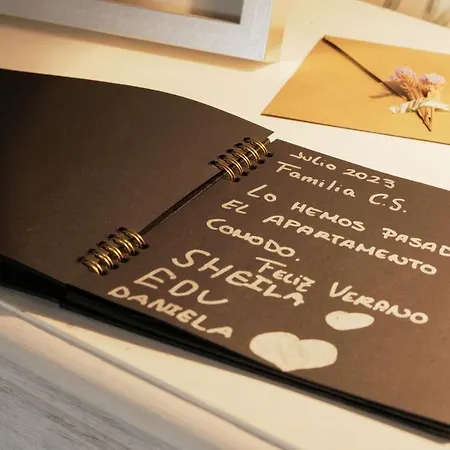 Julio 2023
Familia C.S.
LO HEMOS PASAD
EL APARTAMENTO
COMODO.
FELIZ VERANO
SHEILA
EDU
DANIELA